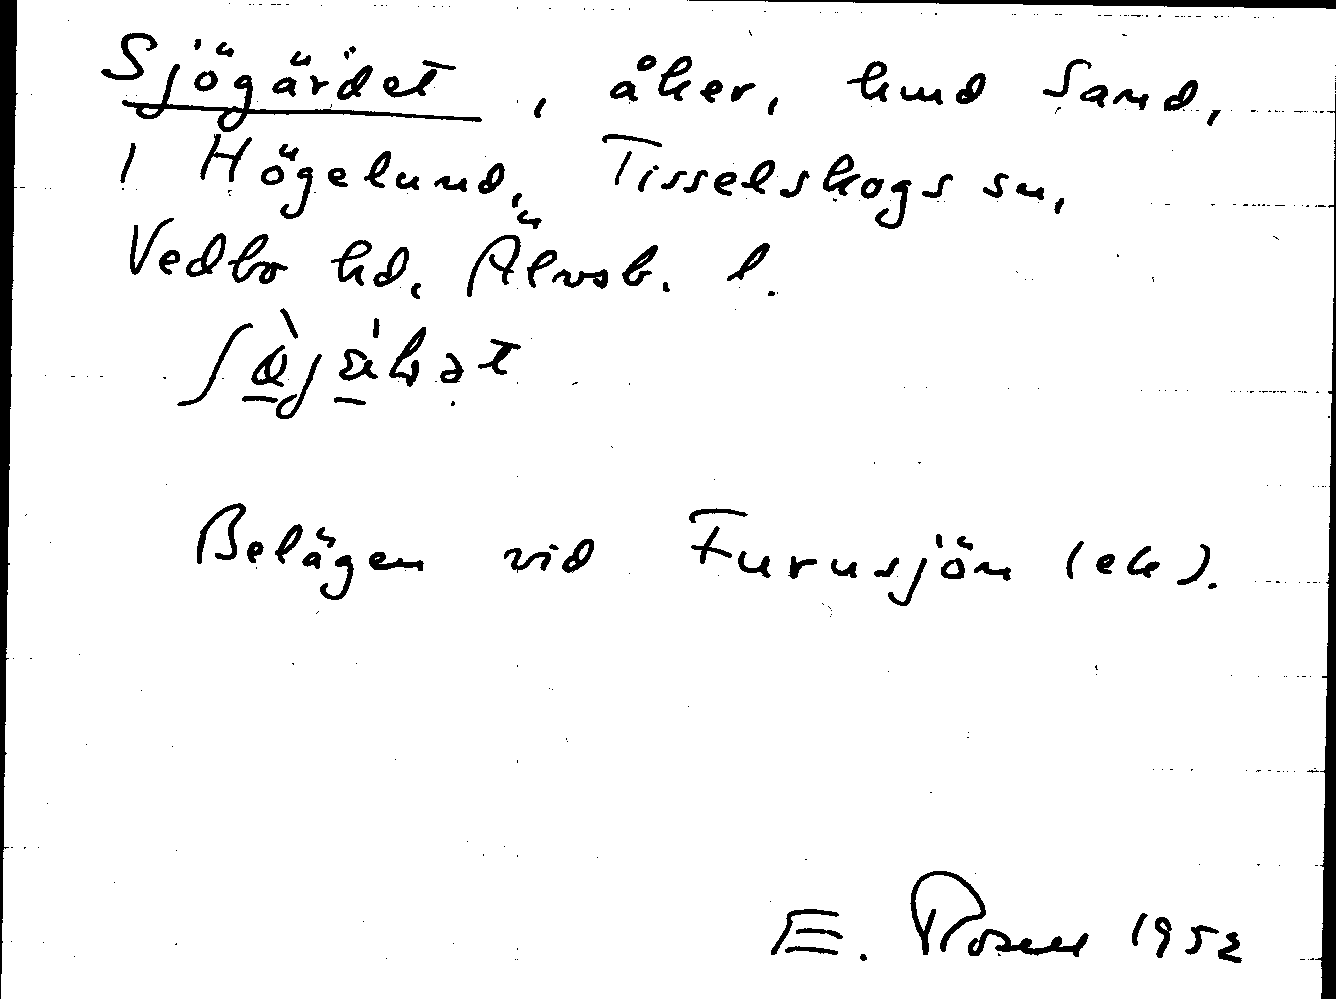 Sjögärdet, åker, hmd Sand,
1 Högelund, Tisselskogs sn,
Vedbo hd, Älvsb. l.
Belägen vid Furusjön (ek).
E. Rosell 1952